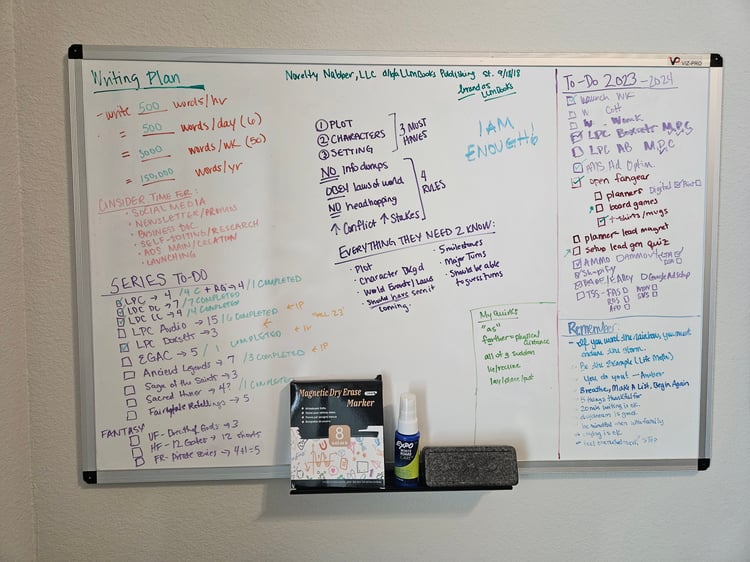 VIZ-PRO
Writing Plan
- write 500 words/hr
= 500 words/day (6)
= 3000 words/wk (50)
= 150,000 words/yr
CONSIDER TIME FOR:
• SOCIAL MEDIA
• NEWSLETTER/PROMOS
• BUSINESS DOC.
• SELF-EDITING/RESEARCH
• ADS MAIN/CREATION
• LAUNCHING
SERIES TO-DO
LPC → 4 /4 C + AG → 4 /1 COMPLETED
→ 7 /7 COMPLETED
LPC CC → 9 /4 COMPLETED
LPC Audio → 15 /6 COMPLETED
LPC Boxsets → 3
EGAC → 5 / 1 COMPLETED
Ancient Legends → 7 /3 COMPLETED
Saga of the Saints → 3
Sacred Humor → 4? /1 Complete
Fairytale Retellings → 5
FANTASY
UF- Breath of Gods → 3
HF- 12 Gates → 12 shorts
FR- Pirate series → 4+1=5
Novelty Nabber, LLC d/b/a LLMBooks Publishing St. 9/18/18
brand as LLMBooks
① PLOT
② CHARACTERS
③ SETTING
3 MUST HAVES
NO Info dumps
OBEY laws of world
NO headhopping
↑ Conflict ↑ Stakes
4 RULES
I AM
ENOUGH!
EVERYTHING THEY NEED 2 KNOW:
• Plot
• Character Bkg'd
• World Events/Laws
• Should have seen it coming.
• 5 milestones
• Major Turns
• Should be able to guess turns
My Quirks
"as"
farther = physical distance
all of a sudden
lie/recline
lay/place/put
To-Do 2023-2024
Launch WK
LPC Boxsets M.P.C
LPC AB M.P.C
AMS Ad Optim.
open fangear
planners Digital
board games
t-shirts/mugs
planner lead magnet
setup lead gen quiz
Shopify
Remember:
- If you want the rainbow, you must endure the storm.
- Be the Example (Life Motto)
- You do you!
- Breathe, Make A List, Begin Again
- 5 things thankful for
- 20 min writing is ok.
- daydream is good
- be mindful when w/family
- trying is ok
Magnetic Dry Erase
Marker
8
EXPO
WHITE BOARD CARE